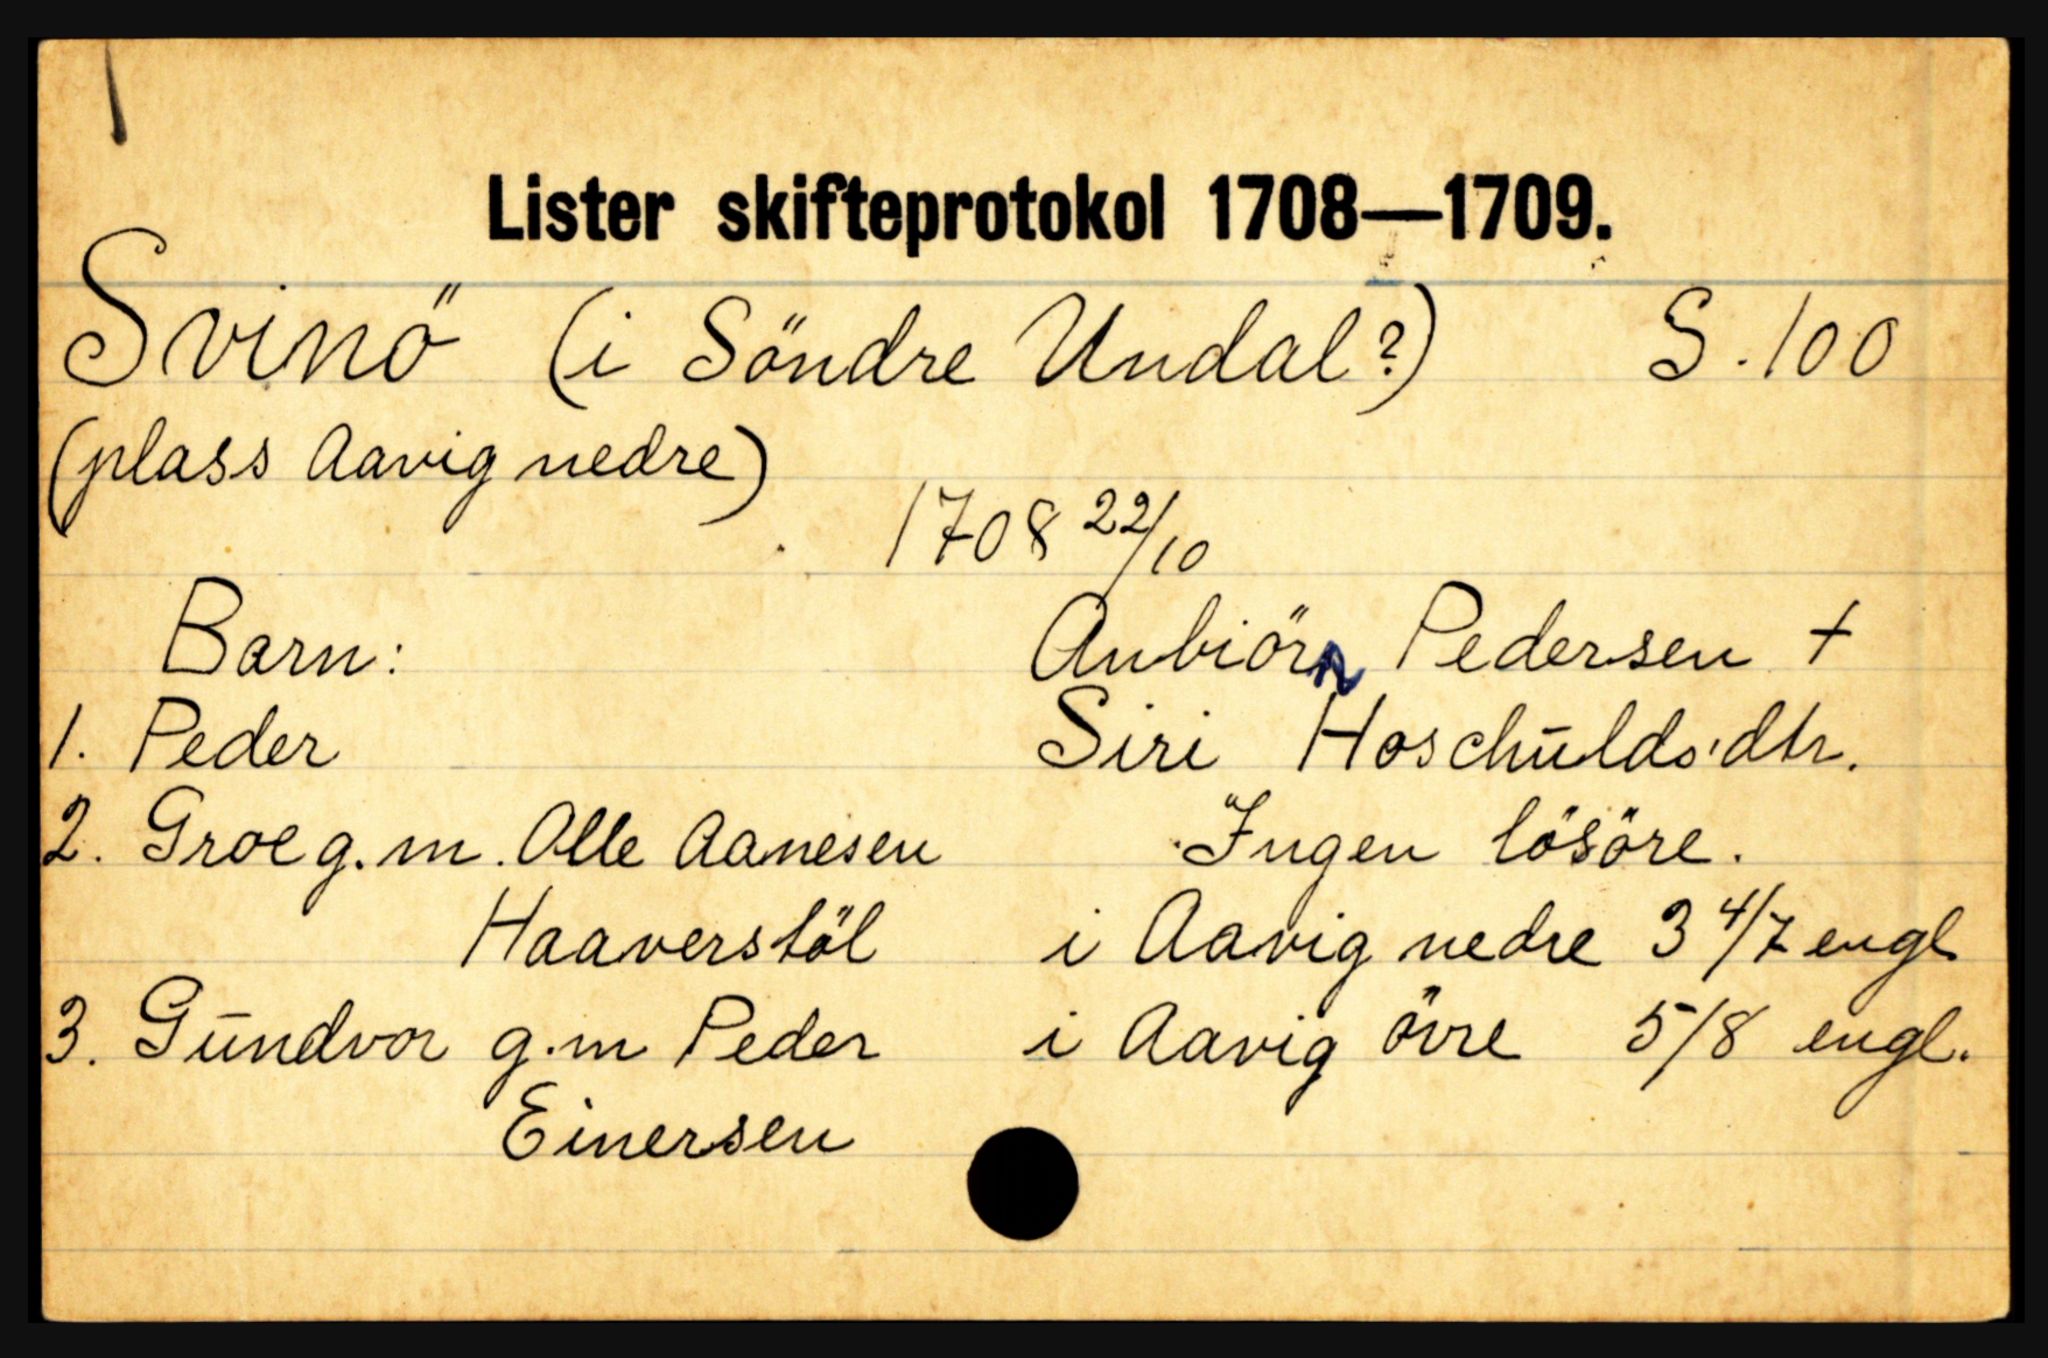 Lister skifteprotokol 1708—1709.
Svinö (i Söndre Undal?) S. 100
(plass Aavig nedre)
1708 22/10
Barn: Anbiörn Pedersen †
1. Peder Siri Hoschūldsdtr.
2. Groe g. m. Olle Aanesen Ingen lösöre.
Haaverstöl i Aavig nedre 3 4/7 engl
3. Gūndvor g. m Peder i Aavig övre 5/8 engl.
Einersen